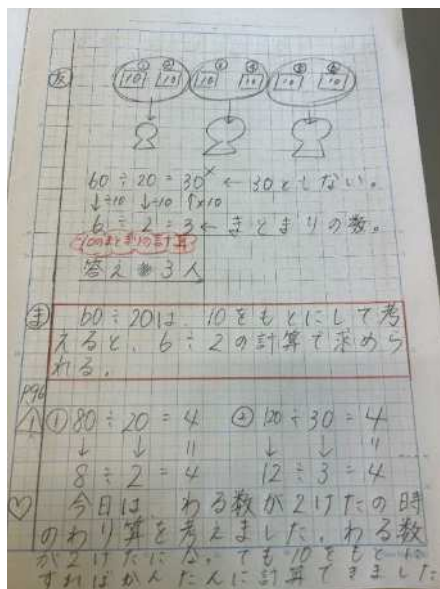 ① ② ③ ④ ⑤ ⑥
友 10 10 10 10 10 10
60÷20=30 ← 30としない。
↓÷10 ↓÷10 ↑×10
6÷2=3 ← まとまりの数。
10のまとまりの計算
答え 3人
ま 60÷20は、10をもとにして考
えると、6÷2の計算で求めら
れる。
P96
△1 ①80÷20=4 ②120÷30=4
↓ ↓ ‖ ↓ ↓ ‖
8÷2=4 12÷3=4
♡ 今日は、わる数が2けたの時
のわり算を考えました。わる数
が2けたになっても10をもとに
すればかんたんに計算できました